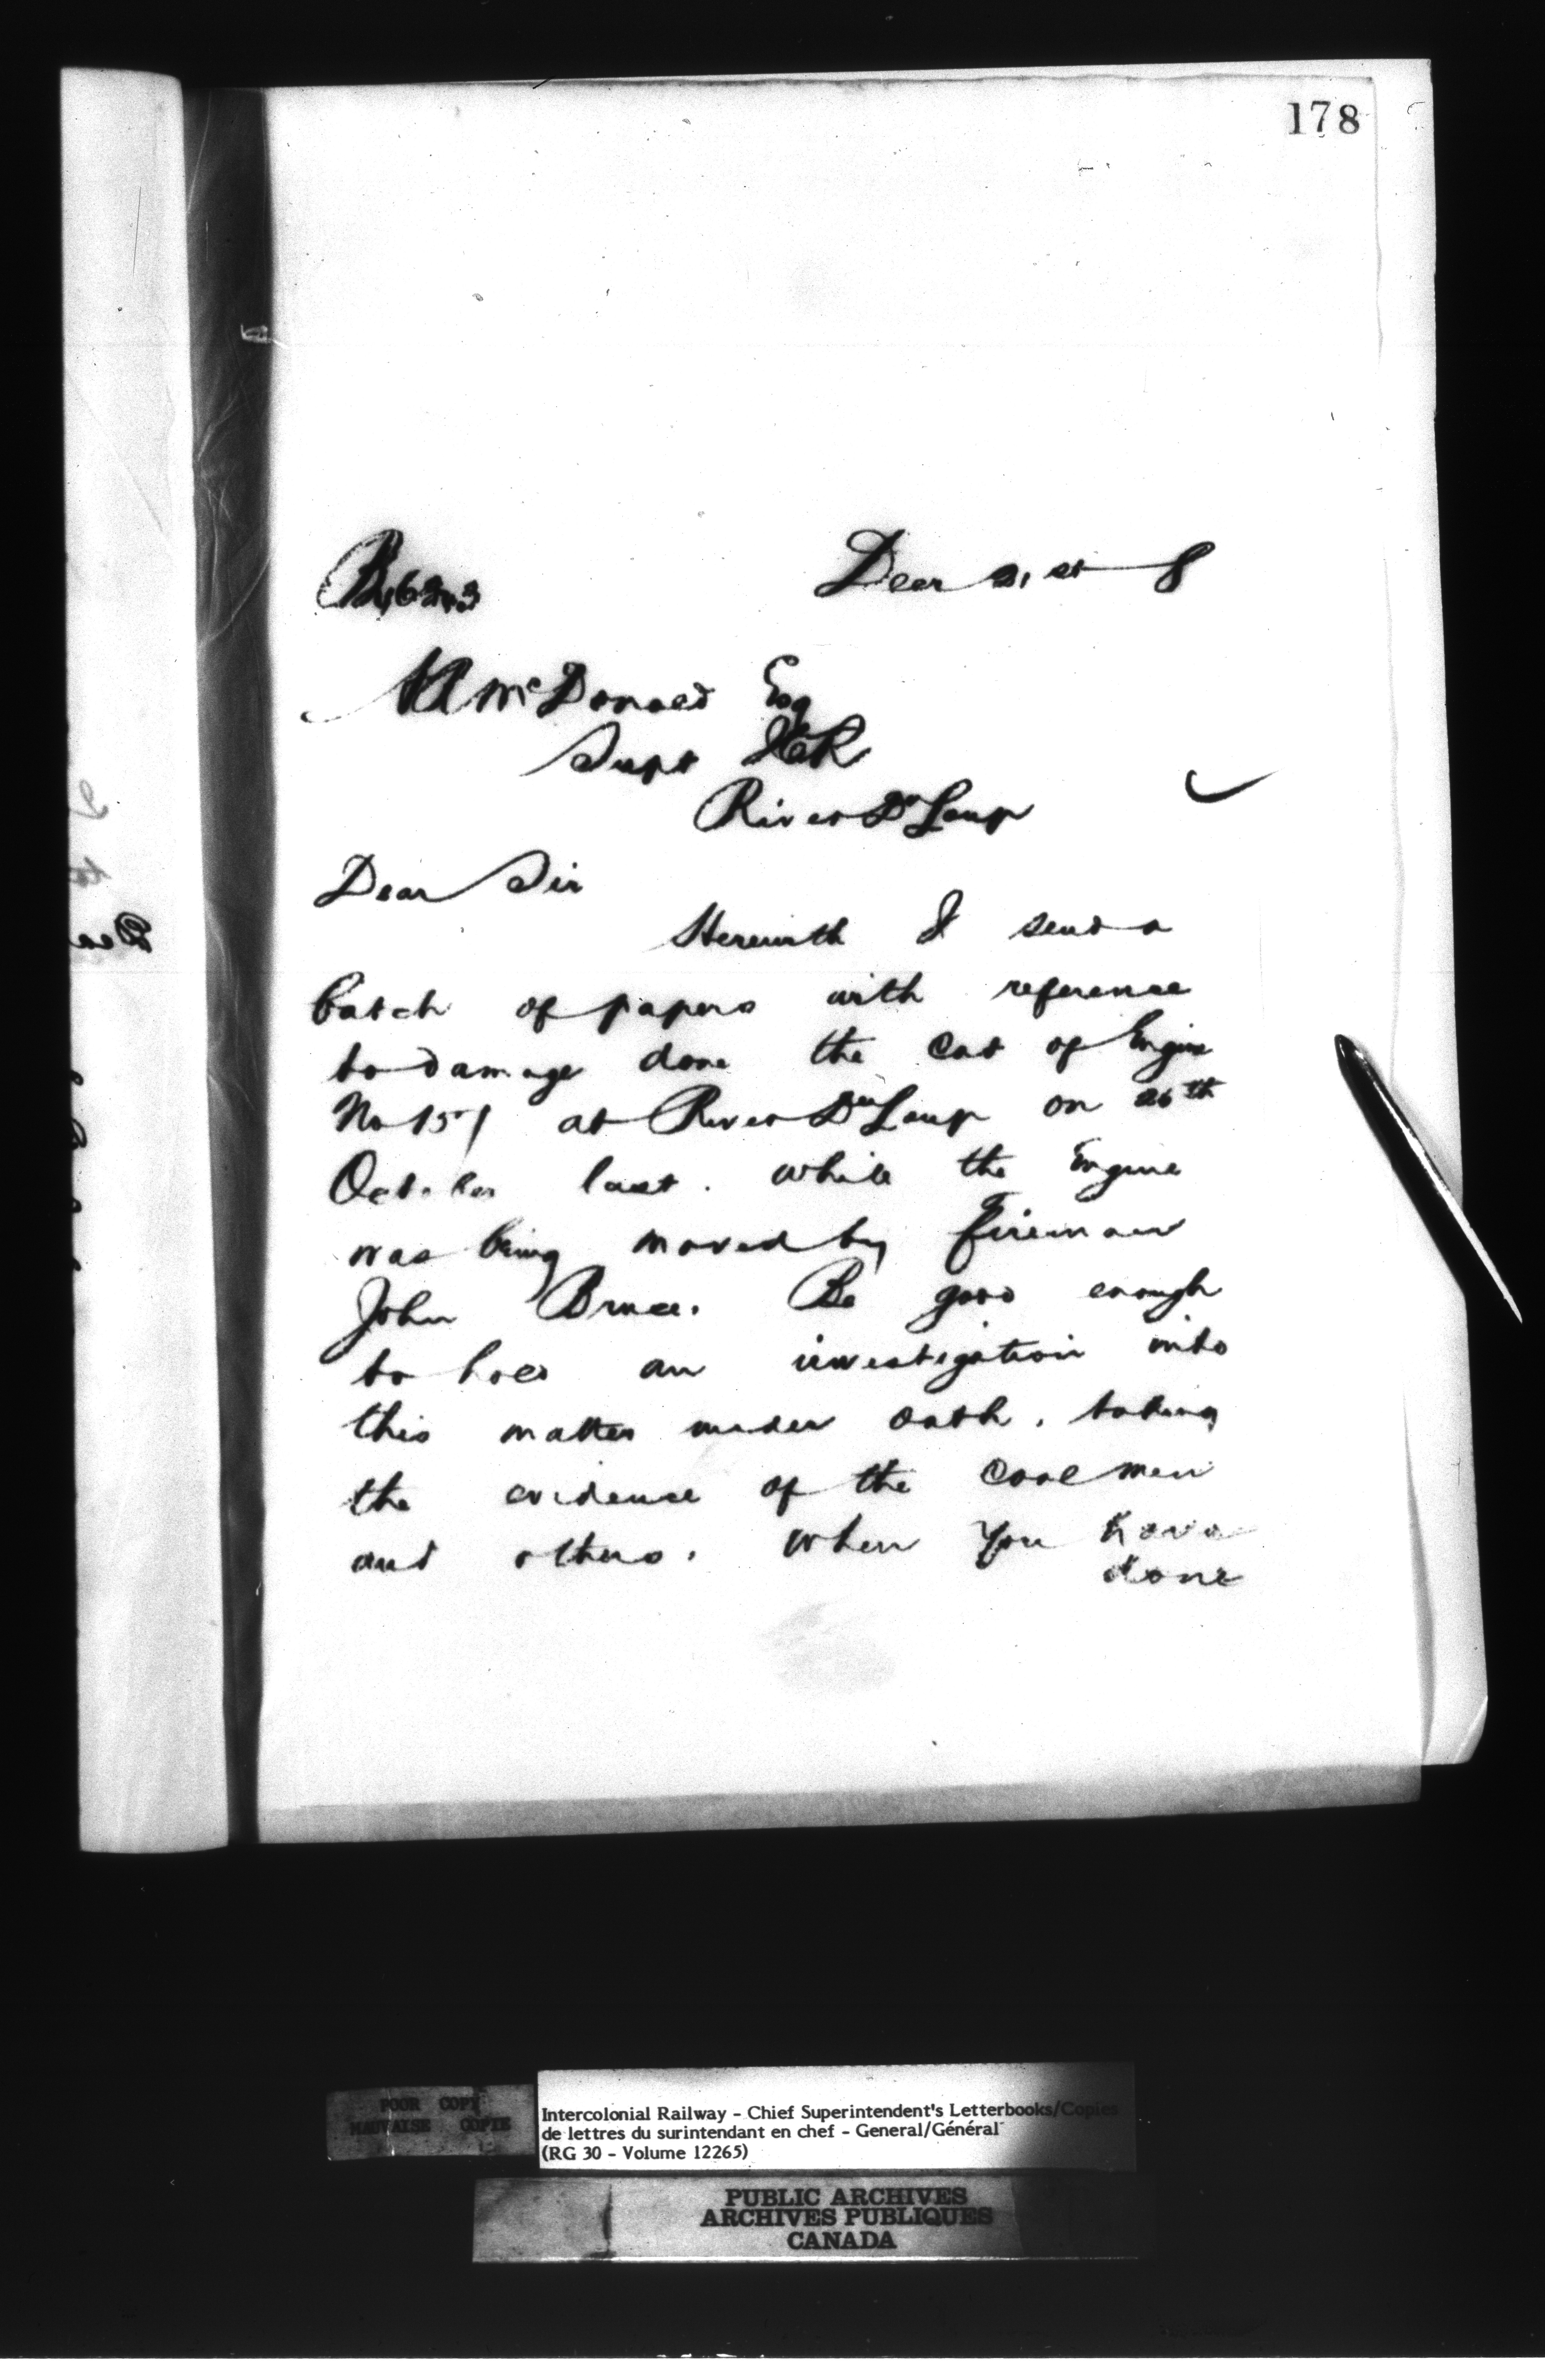 178
Decr 21st 8
A R McDonald Esq
Supt ICR
River Du Loup
Dear Sir
Herewith I send a
batch of papers with reference
to damage done the Cab of Engine
No 151 at River Du Loup on 26th
October last. while the Engine
was being moved by fireman
John Bruce. Be good enough
to hold an investigation into
this matter under oath, taking
the evidence of the Coal men
and others. When you have
done
POOR COPY
MAUVAISE COPIE
Intercolonial Railway - Chief Superintendent's Letterbooks/Copies
de lettres du surintendant en chef - General/Général
(RG 30 - Volume 12265)
PUBLIC ARCHIVES
ARCHIVES PUBLIQUES
CANADA